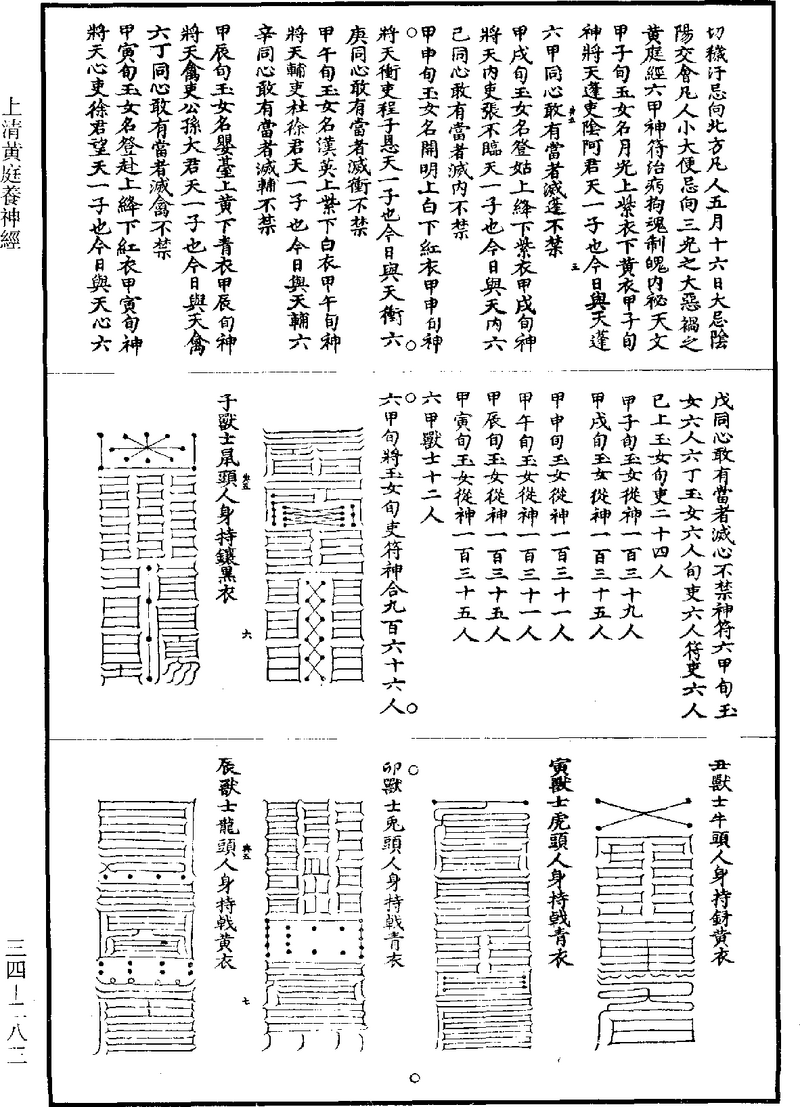 切穢汙忌向北方凡人五月十六日大忌陰
陽交會凡人小大便忌向三光之大惡禍之
黃庭經六甲神符治病拘魂制魄內祕天文
甲子旬玉女名月光上紫衣下黃衣甲子旬
神將天蓬吏陰阿君天一子也今日與天蓬
六甲同心敢有當者滅蓬不禁
甲戌旬玉女名登姑上絳下紫衣甲戌旬神
將天內吏張不臨天一子也今日與天內六
己同心敢有當者滅內不禁
甲申旬玉女名開明上白下紅衣甲申旬神
將天衝吏程子恩天一子也今日與天衝六
庚同心敢有當者滅衝不禁
甲午旬玉女名漢英上紫下白衣甲午旬神
將天輔吏杜徐君天一子也今日與天輔六
辛同心敢有當者滅輔不禁
甲辰旬玉女名嬰臺上黃下青衣甲辰旬神
將天禽吏公孫大君天一子也今日與天禽
六丁同心敢有當者滅禽不禁
甲寅旬玉女名登赴上絳下紅衣甲寅旬神
將天心吏徐君望天一子也今日與天心六
戊同心敢有當者滅心不禁神符六甲旬玉
女六人六丁玉女六人旬吏六人符吏六人
已上玉女旬吏二十四人
甲子旬玉女從神一百三十九人
甲戌旬玉女從神一百三十五人
甲申旬玉女從神一百三十一人
甲午旬玉女從神一百三十一人
甲辰旬玉女從神一百三十五人
甲寅旬玉女從神一百三十五人
六甲獸士十二人
六甲旬將玉女旬吏符神合九百六十六人
子獸士鼠頭人身持鑲黑衣
六
丑獸士牛頭人身持釾黃衣
寅獸士虎頭人身持戟青衣
卯獸士兎頭人身持戟青衣
辰獸士龍頭人身持戟黃衣
七
上清黃庭養神經
三四－二八二